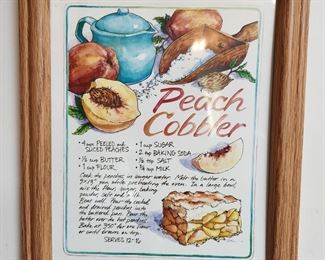 Peach
Cobbler
• 4 cups PEELED and
SLICED PEACHES
• ½ cup BUTTER
• 1 cup FLOUR
• 1 cup SUGAR
• 2 tsp BAKING SODA
• ½ tsp SALT
• ¾ cup MILK
Cook the peaches in sugar water. Melt the butter in a
9"x13" pan while preheating the oven. In a large bowl,
mix the flour, sugar, baking
powder, salt and milk.
Beat well. Pour the cooked
and drained peaches into
the buttered pan. Pour the
batter over the hot peaches.
Bake at 350° for one hour
or until brown on top.
SERVES 12-16